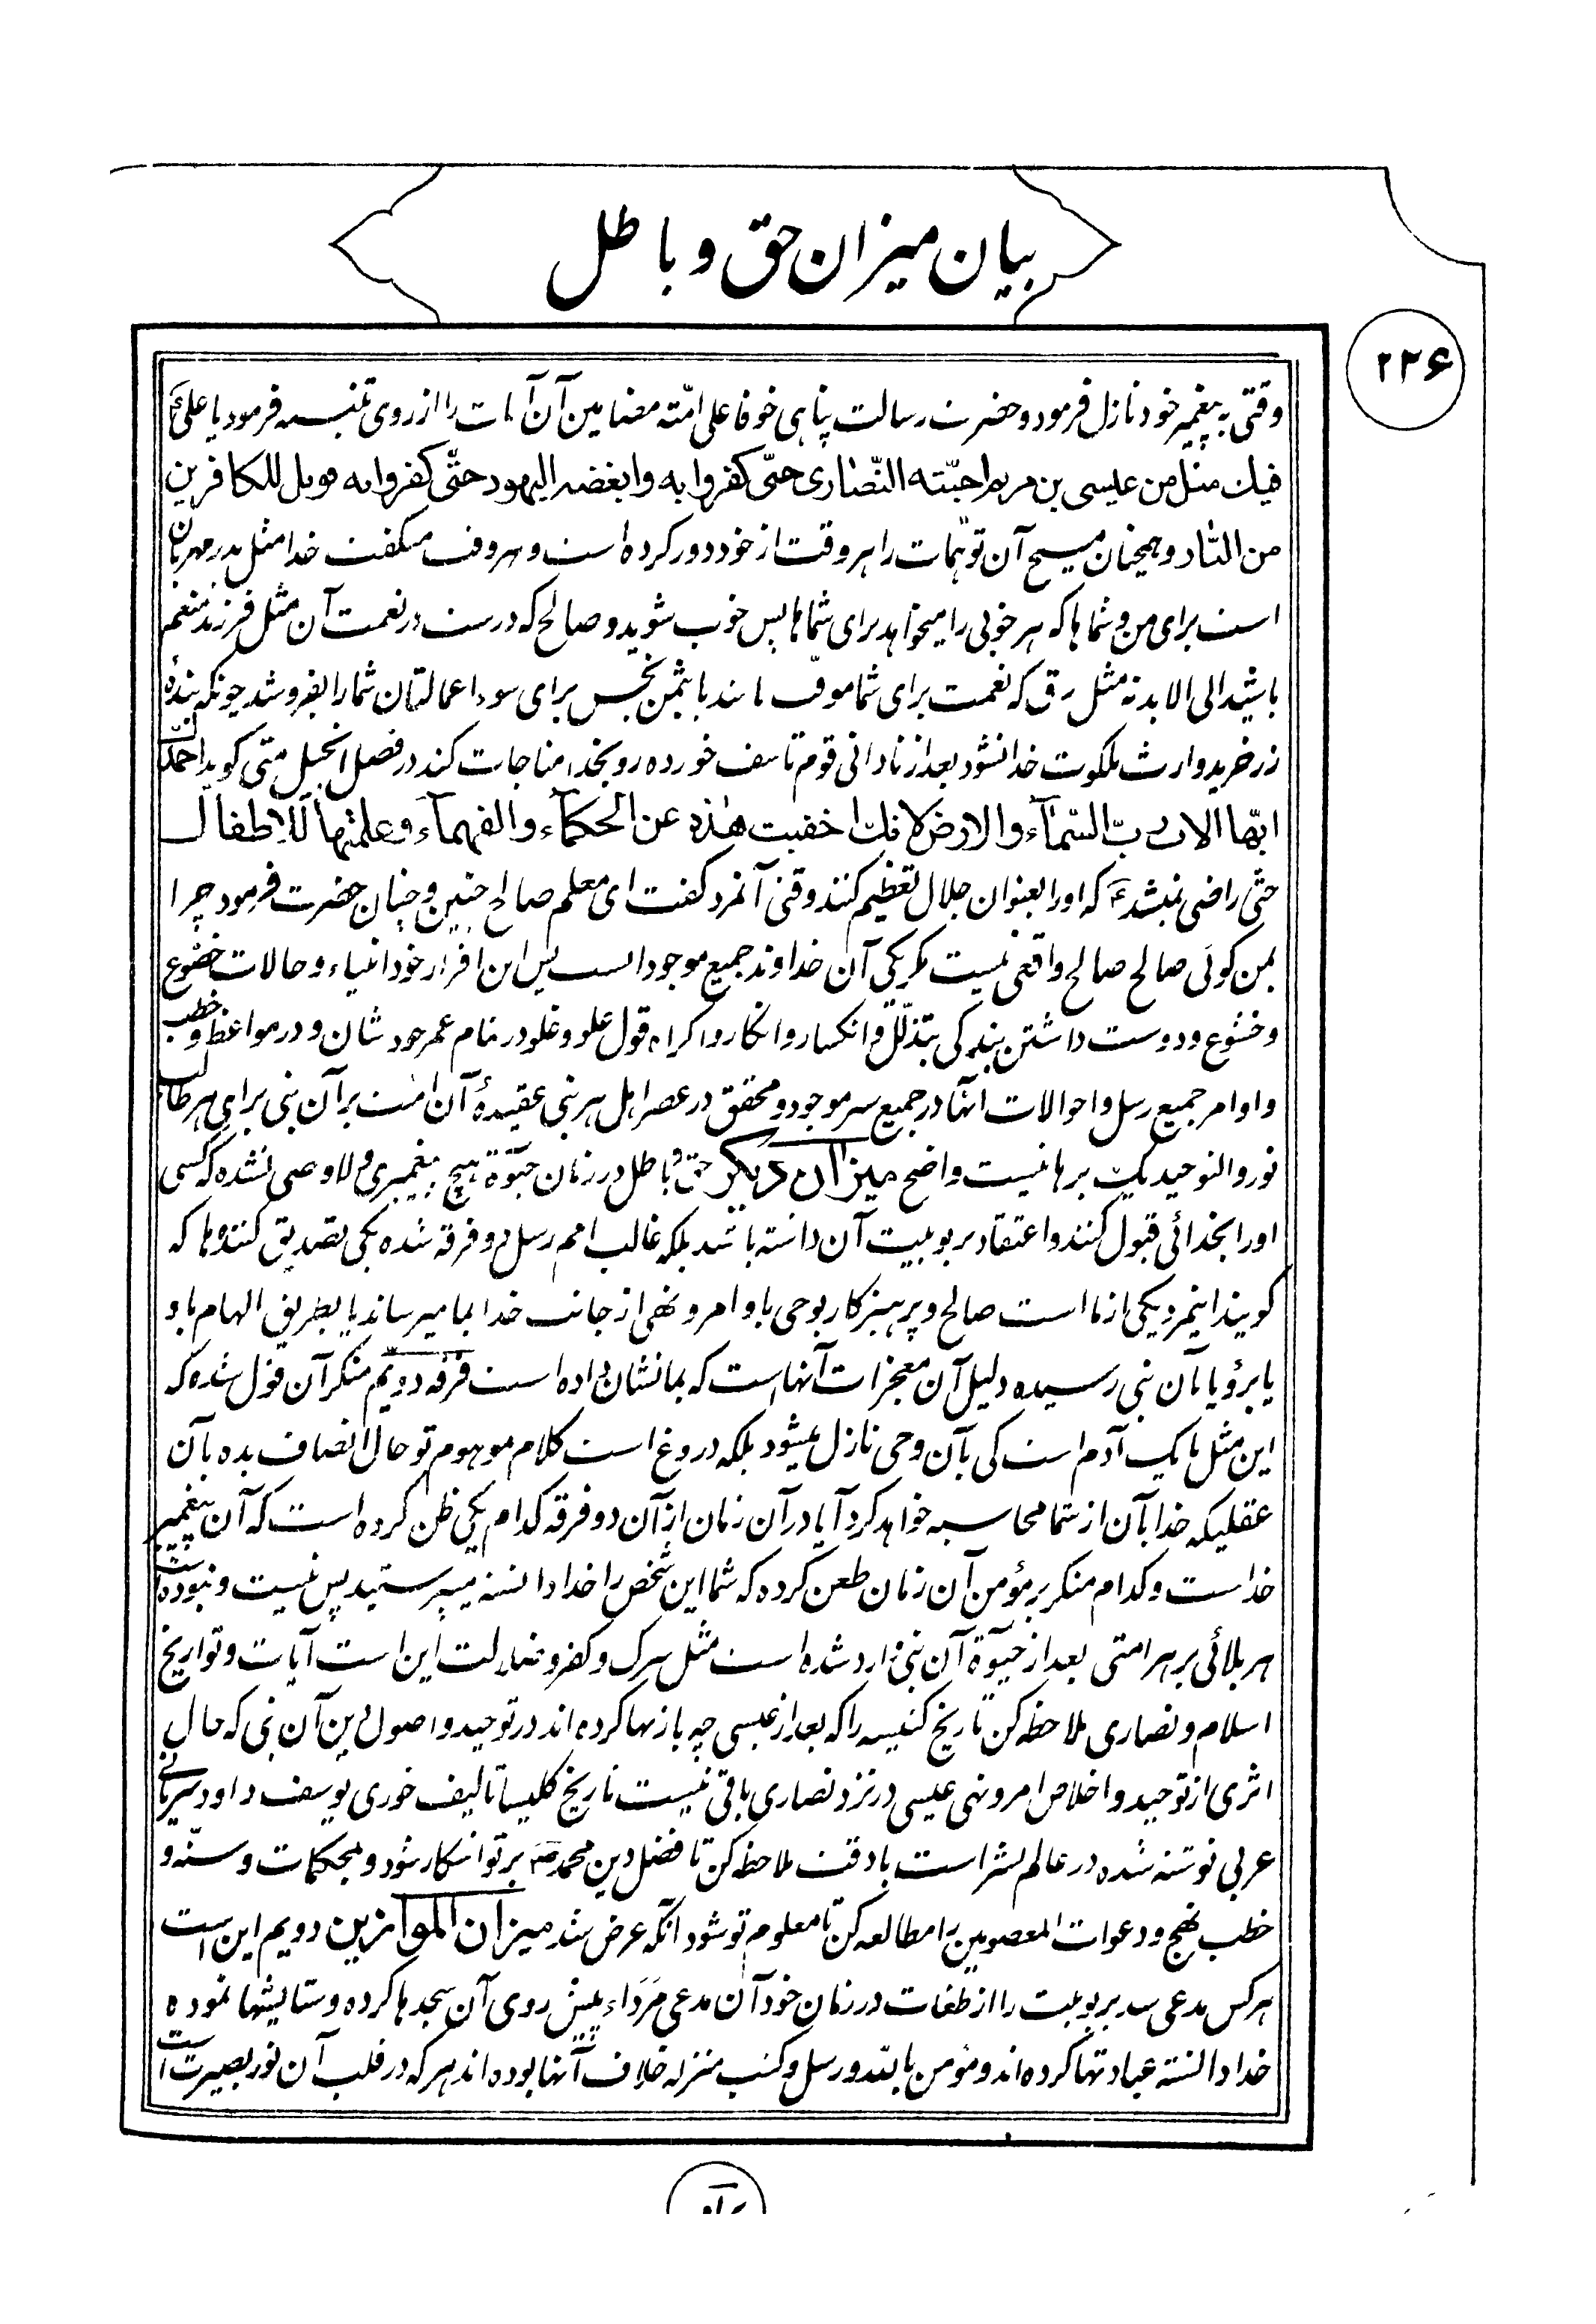 بیان میزان حق و باطل
۲۲۶
وقتی به پیغمبر خود نازل فرمود و حضرت رسالت پناهی خوفا علی امّته مضامین آن آیات را از روی تنبیه فرمود یا علی
فیك مثل من عیسی بن مریم احبّته النّصاری حتّی کفروا به وابغضه الیهود حتّی کفروا به فویل للکافرین
من النّار و همچنان مسیح آن توهّمات را هر وقت از خود دور کرده است و میگفت خدا مثل پدر مهربان
است برای من و شماها که هر خوبی را میخواهد برای شماها پس خوب شوید و صالح که درست در نعمت آن مثل فرزند متنعم
باشید الی الابد نه مثل رق که نعمت برای شما موقّت باشد یا بثمن بخس برای سوء اعمالتان شما را بفروشد چونکه بندهٔ
زر خرید وارث ملکوت خدا نشود بعد از نادانی قوم تاسف خورده رو بخدا مناجات کند در فصل انجیل متی گوید احمدك
ایّها الاب ربّ السّمآء والارض لانّك اخفیت هذه عن الحکمآء والفهمآء وعلمتها للاطفال
حتّی راضی نمیشد که او را بعنوان جلال تعظیم کنند وقتی آنمرد گفت ای معلم صالح چنین و چنان حضرت فرمود چرا
بمن گوئی صالح صالح واقعی نیست مگر یکی آن خداوند جمیع موجود است پس این اقرار خود انبیاء و حالات خضوع
و خشوع و دوست داشتن بندگی بتذلّل و انکسار و انکار و اکراه قول علو و غلو در تمام عمر خودشان و در مواعظ و خطب
و اوامر جمیع رسل و احوالات آنها در جمیع سیر موجود و محقق در عصر اهل هر نبی عقیدهٔ آن امّت بر آن نبی برای هر طالب
نور والتوحید یک برهانیست واضح میزان دیگر حق و باطل در زمان حیوة هیچ پیغمبری و لا وصی نشده که کسی
او را بخدائی قبول کنند و اعتقاد بربوبیت آن داشته باشد بلکه غالب امم رسل دو فرقه شده یکی تصدیق کننده ها که
گویند اینمرد یکی از ما است صالح و پرهیزکار بوحی با و امر و نهی از جانب خدا بما میرساند یا بطریق الهام باو
یا برؤیا بآن نبی رسیده دلیل آن معجزات آنها است که بما نشان داده است فرقه دویم منکر آن قول شده که
این مثل ما یک آدم است کی بآن وحی نازل میشود بلکه دروغ است کلام موهوم تو حال انصاف بده بآن
عقلیکه خدا بآن از شما محاسبه خواهد کرد آیا در آن زمان از آن دو فرقه کدام یکی ظن کرده است که آن پیغمبر
خداست و کدام منکر بر مؤمن آن زمان طعن کرده که شما این شخص را خدا دانسته میپرستید پس نیست و نبوده است
هر بلائی بر هر امتی بعد از حیوة آن نبی وارد شده است مثل شرک و کفر و ضلالت این است آیات و تواریخ
اسلام و نصاری ملاحظه کن تاریخ کنیسه را که بعد از عیسی چه بازیها کرده اند در توحید و اصول دین آن نبی که حال
اثری از توحید و اخلاص امر و نهی عیسی در نزد نصاری باقی نیست تاریخ کلیسا تالیف خوری یوسف داود سریانی
عربی نوشته شده در عالم نشر است با دقت ملاحظه کن تا فضل دین محمد ص بر تو آشکار شود و محکمات و سنّه و
خطب نهج و دعوات المعصومین را مطالعه کن تا معلوم تو شود آنکه عرض شد میزان الموازین دویم این است
هر کس مدعی شد بربوبیت را از طغات در زمان خود آن مدعی مَرَداء پیش روی آن سجدها کرده و ستایشها نموده
خدا دانسته عبادتها کرده اند و مؤمن بالله و رسل و کتب منزله خلاف آنها بوده اند هر که در قلب آن نور بصیرت است